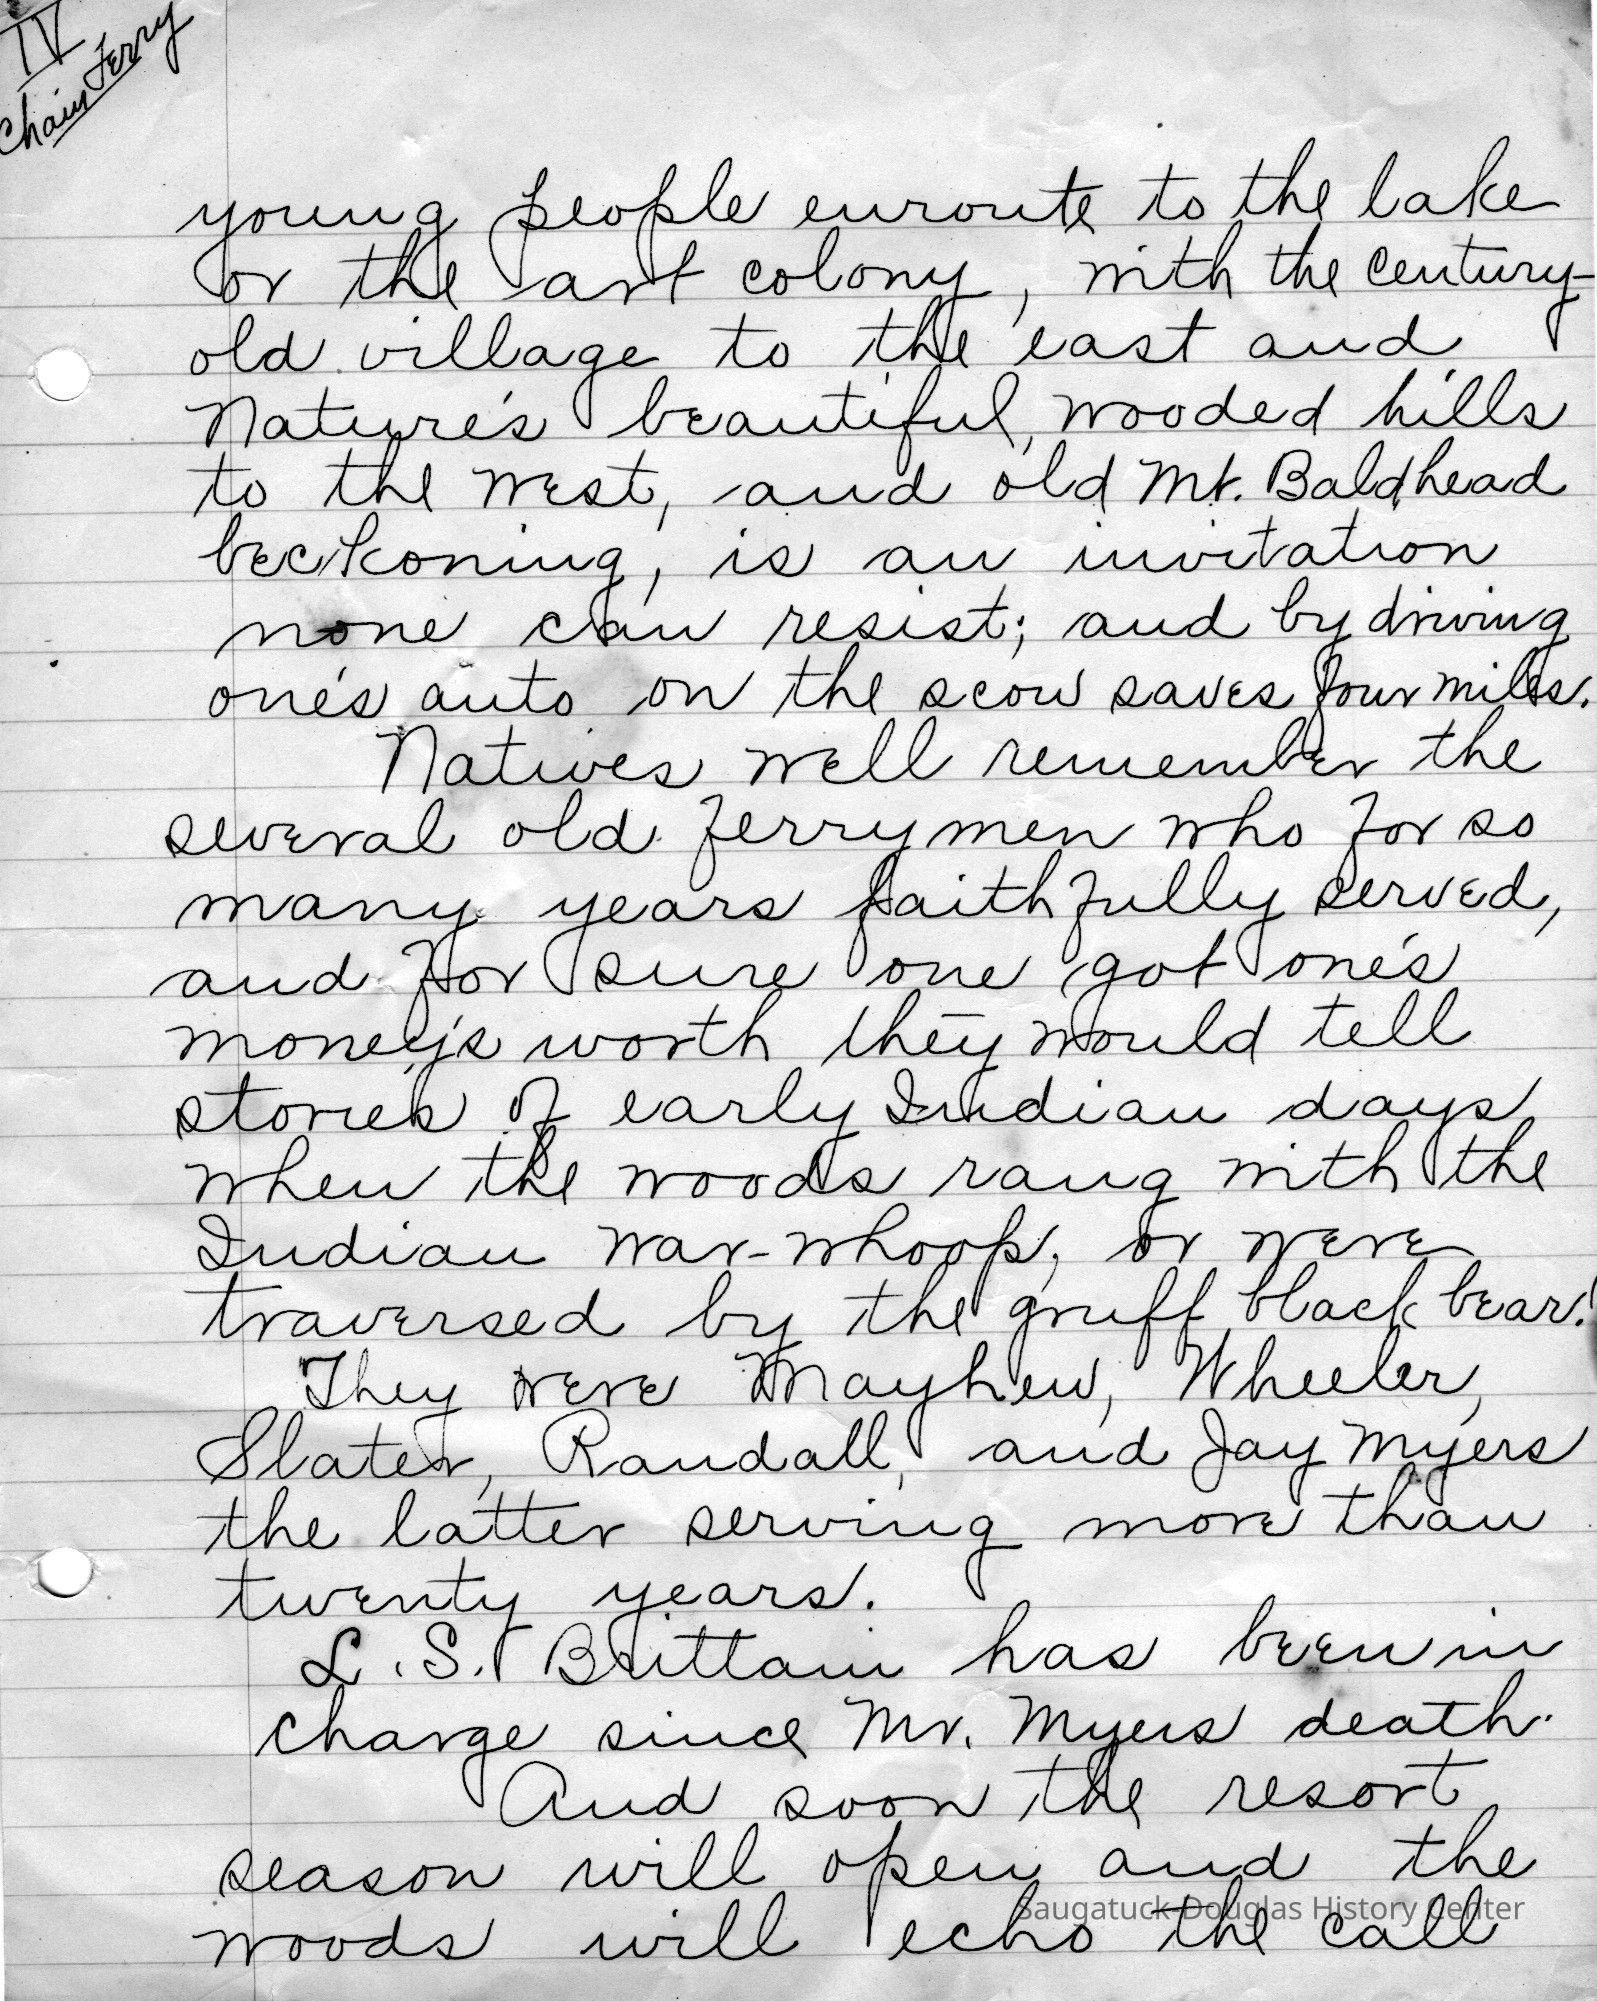 IV
Chain Ferry
young people enroute to the lake
or the art colony, with the century-
old village to the east and
Nature's beautiful, wooded hills
to the west, and old Mt. Baldhead
beckoning, is an invitation
none can resist; and by driving
one's auto on the scow saves four miles.
Natives well remember the
several old ferrymen who for so
many years faithfully served,
and for sure one got one's
money's worth they would tell
stories of early Indian days
when the woods rang with the
Indian war-whoop, or were
traversed by the gruff black bear!
They were Mayhew, Wheeler,
Slater, Randall, and Jay Myers
the latter serving more than
twenty years.
L.S. Brittain has been in
charge since Mr. Myers death.
And soon the resort
season will open and the
Saugatuck-Douglas History Center
woods will echo the call